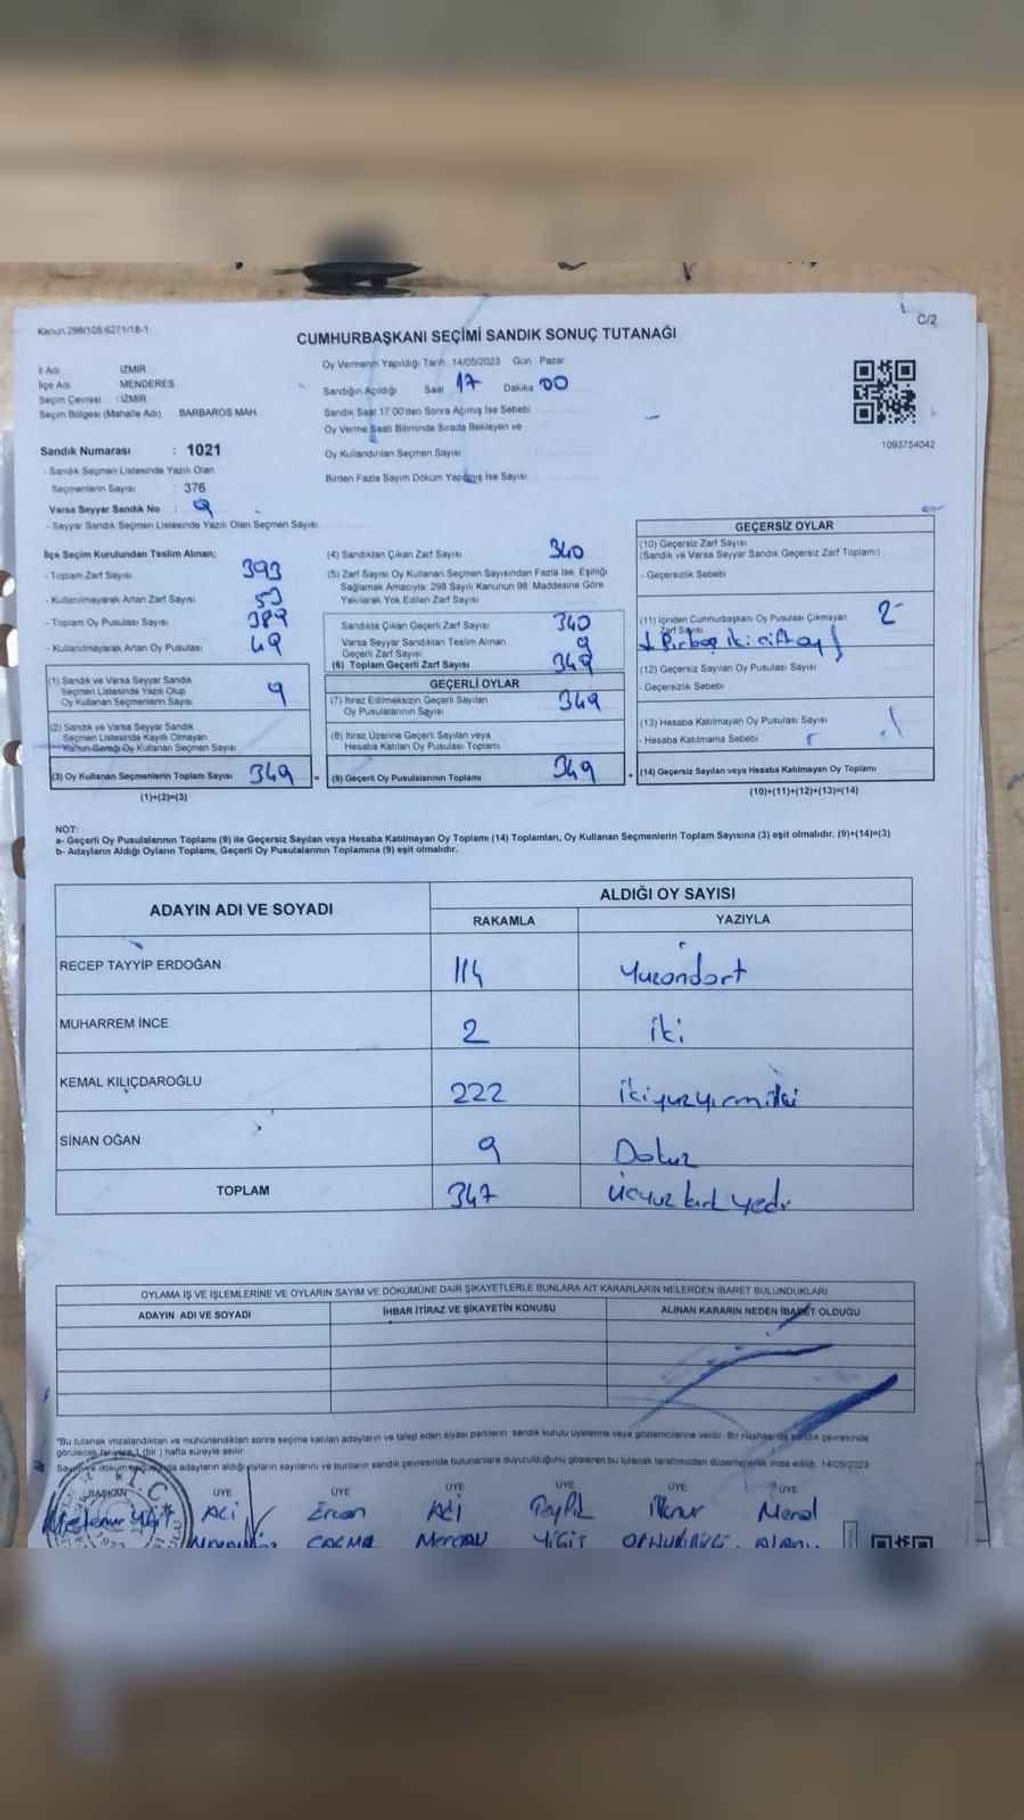 Kanun 298/105 6271/18-1
C/2
CUMHURBAŞKANI SEÇİMİ SANDIK SONUÇ TUTANAĞI
İl Adı : İZMİR
İlçe Adı : MENDERES
Seçim Çevresi : İZMİR
Seçim Bölgesi (Mahalle Adı) BARBAROS MAH.
Sandık Numarası : 1021
- Sandık Seçmen Listesinde Yazılı Olan
Seçmenlerin Sayısı : 376
Varsa Seyyar Sandık No : 9
- Seyyar Sandık Seçmen Listesinde Yazılı Olan Seçmen Sayısı
Oy Vermenin Yapıldığı Tarih 14/05/2023 Gün Pazar
Sandığın Açıldığı Saat 17 Dakika 00
Sandık Saat 17.00'den Sonra Açılmış İse Sebebi
Oy Verme Saati Bitiminde Sırada Bekleyen ve
Oy Kullandırılan Seçmen Sayısı
Birden Fazla Sayım Döküm Yapılmış İse Sayısı
1093754042
İlçe Seçim Kurulundan Teslim Alınan;
- Toplam Zarf Sayısı 393
- Kullanılmayarak Artan Zarf Sayısı 53
- Toplam Oy Pusulası Sayısı 389
- Kullanılmayarak Artan Oy Pusulası 49
(1) Sandık ve Varsa Seyyar Sandık
Seçmen Listesinde Yazılı Olup
Oy Kullanan Seçmenlerin Sayısı 9
(2) Sandık ve Varsa Seyyar Sandık
Seçmen Listesinde Kayıtlı Olmayan
Kanun Gereği Oy Kullanan Seçmen Sayısı
(3) Oy Kullanan Seçmenlerin Toplam Sayısı 349
(1)+(2)=(3)
(4) Sandıktan Çıkan Zarf Sayısı 340
(5) Zarf Sayısı Oy Kullanan Seçmen Sayısından Fazla İse, Eşitliği
Sağlamak Amacıyla; 298 Sayılı Kanunun 98. Maddesine Göre
Yakılarak Yok Edilen Zarf Sayısı
Sandıkta Çıkan Geçerli Zarf Sayısı 340
Varsa Seyyar Sandıktan Teslim Alınan
Geçerli Zarf Sayısı 9
(6) Toplam Geçerli Zarf Sayısı 349
GEÇERLİ OYLAR
(7) İtiraz Edilmeksizin Geçerli Sayılan
Oy Pusulalarının Sayısı 349
(8) İtiraz Üzerine Geçerli Sayılan veya
Hesaba Katılan Oy Pusulası Toplamı
(9) Geçerli Oy Pusulalarının Toplamı 349
GEÇERSİZ OYLAR
(10) Geçersiz Zarf Sayısı
(Sandık ve Varsa Seyyar Sandık Geçersiz Zarf Toplamı)
- Geçersizlik Sebebi
(11) İçinden Cumhurbaşkanı Oy Pusulası Çıkmayan
Zarf Sayısı 2
(12) Geçersiz Sayılan Oy Pusulası Sayısı
- Geçersizlik Sebebi
(13) Hesaba Katılmayan Oy Pusulası Sayısı
- Hesaba Katılmama Sebebi
(14) Geçersiz Sayılan veya Hesaba Katılmayan Oy Toplamı
(10)+(11)+(12)+(13)=(14)
NOT:
a- Geçerli Oy Pusulalarının Toplamı (9) ile Geçersiz Sayılan veya Hesaba Katılmayan Oy Toplamı (14) Toplamları, Oy Kullanan Seçmenlerin Toplam Sayısına (3) eşit olmalıdır. (9)+(14)=(3)
b- Adayların Aldığı Oyların Toplamı, Geçerli Oy Pusulalarının Toplamına (9) eşit olmalıdır.
ADAYIN ADI VE SOYADI
ALDIĞI OY SAYISI
RAKAMLA YAZIYLA
RECEP TAYYİP ERDOĞAN 114 Yüzondört
MUHARREM İNCE 2 iki
KEMAL KILIÇDAROĞLU 222 ikiyüzyirmiiki
SİNAN OĞAN 9 Dokuz
TOPLAM 347 Üçyüz kırk yedi
OYLAMA İŞ VE İŞLEMLERİNE VE OYLARIN SAYIM VE DÖKÜMÜNE DAİR ŞİKAYETLERLE BUNLARA AİT KARARLARIN NELERDEN İBARET BULUNDUKLARI
ADAYIN ADI VE SOYADI İHBAR İTİRAZ VE ŞİKAYETİN KONUSU ALINAN KARARIN NEDEN İBARET OLDUĞU
*Bu tutanak imzalandıktan ve mühürlendikten sonra seçime katılan adayların ve talep eden siyasi partilerin sandık kurulu üyelerine veya gözlemcilerine verilir. Bir nüshası da sandık çevresinde
görülecek bir yere 1 (bir) hafta süreyle asılır.
adayların aldığı oyların sayılarını ve bunların sandık çevresinde bulunanlara duyurulduğunu gösteren bu tutanak tarafımızdan düzenlenerek imza edildi. 14/05/2023
BAŞKAN ÜYE ÜYE ÜYE ÜYE ÜYE ÜYE
Ali Ercan Ali Meral
YİĞİT